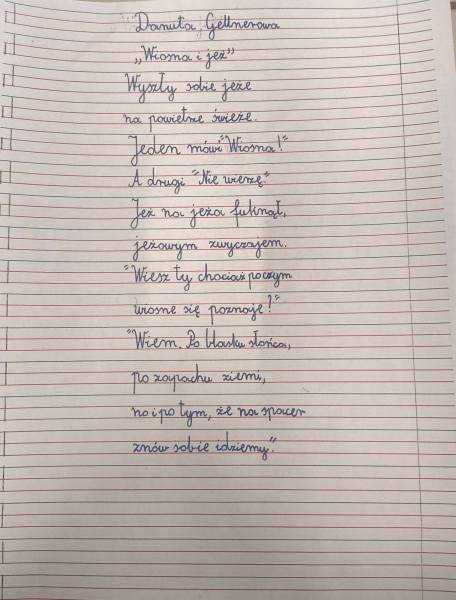 Danuta Gellnerowa
„Wiosna i jeż”
Wyszły sobie jeże
na powietrze świeże.
Jeden mówi "Wiosna!"
A drugi "Nie wierzę."
Jeż na jeża fuknął,
jeżowym zwyczajem.
"Wiesz ty chociaż po czym
wiosne się poznaje?"
"Wiem. Po blasku słońca,
po zapachu ziemi,
no i po tym, że na spacer
znów sobie idziemy."